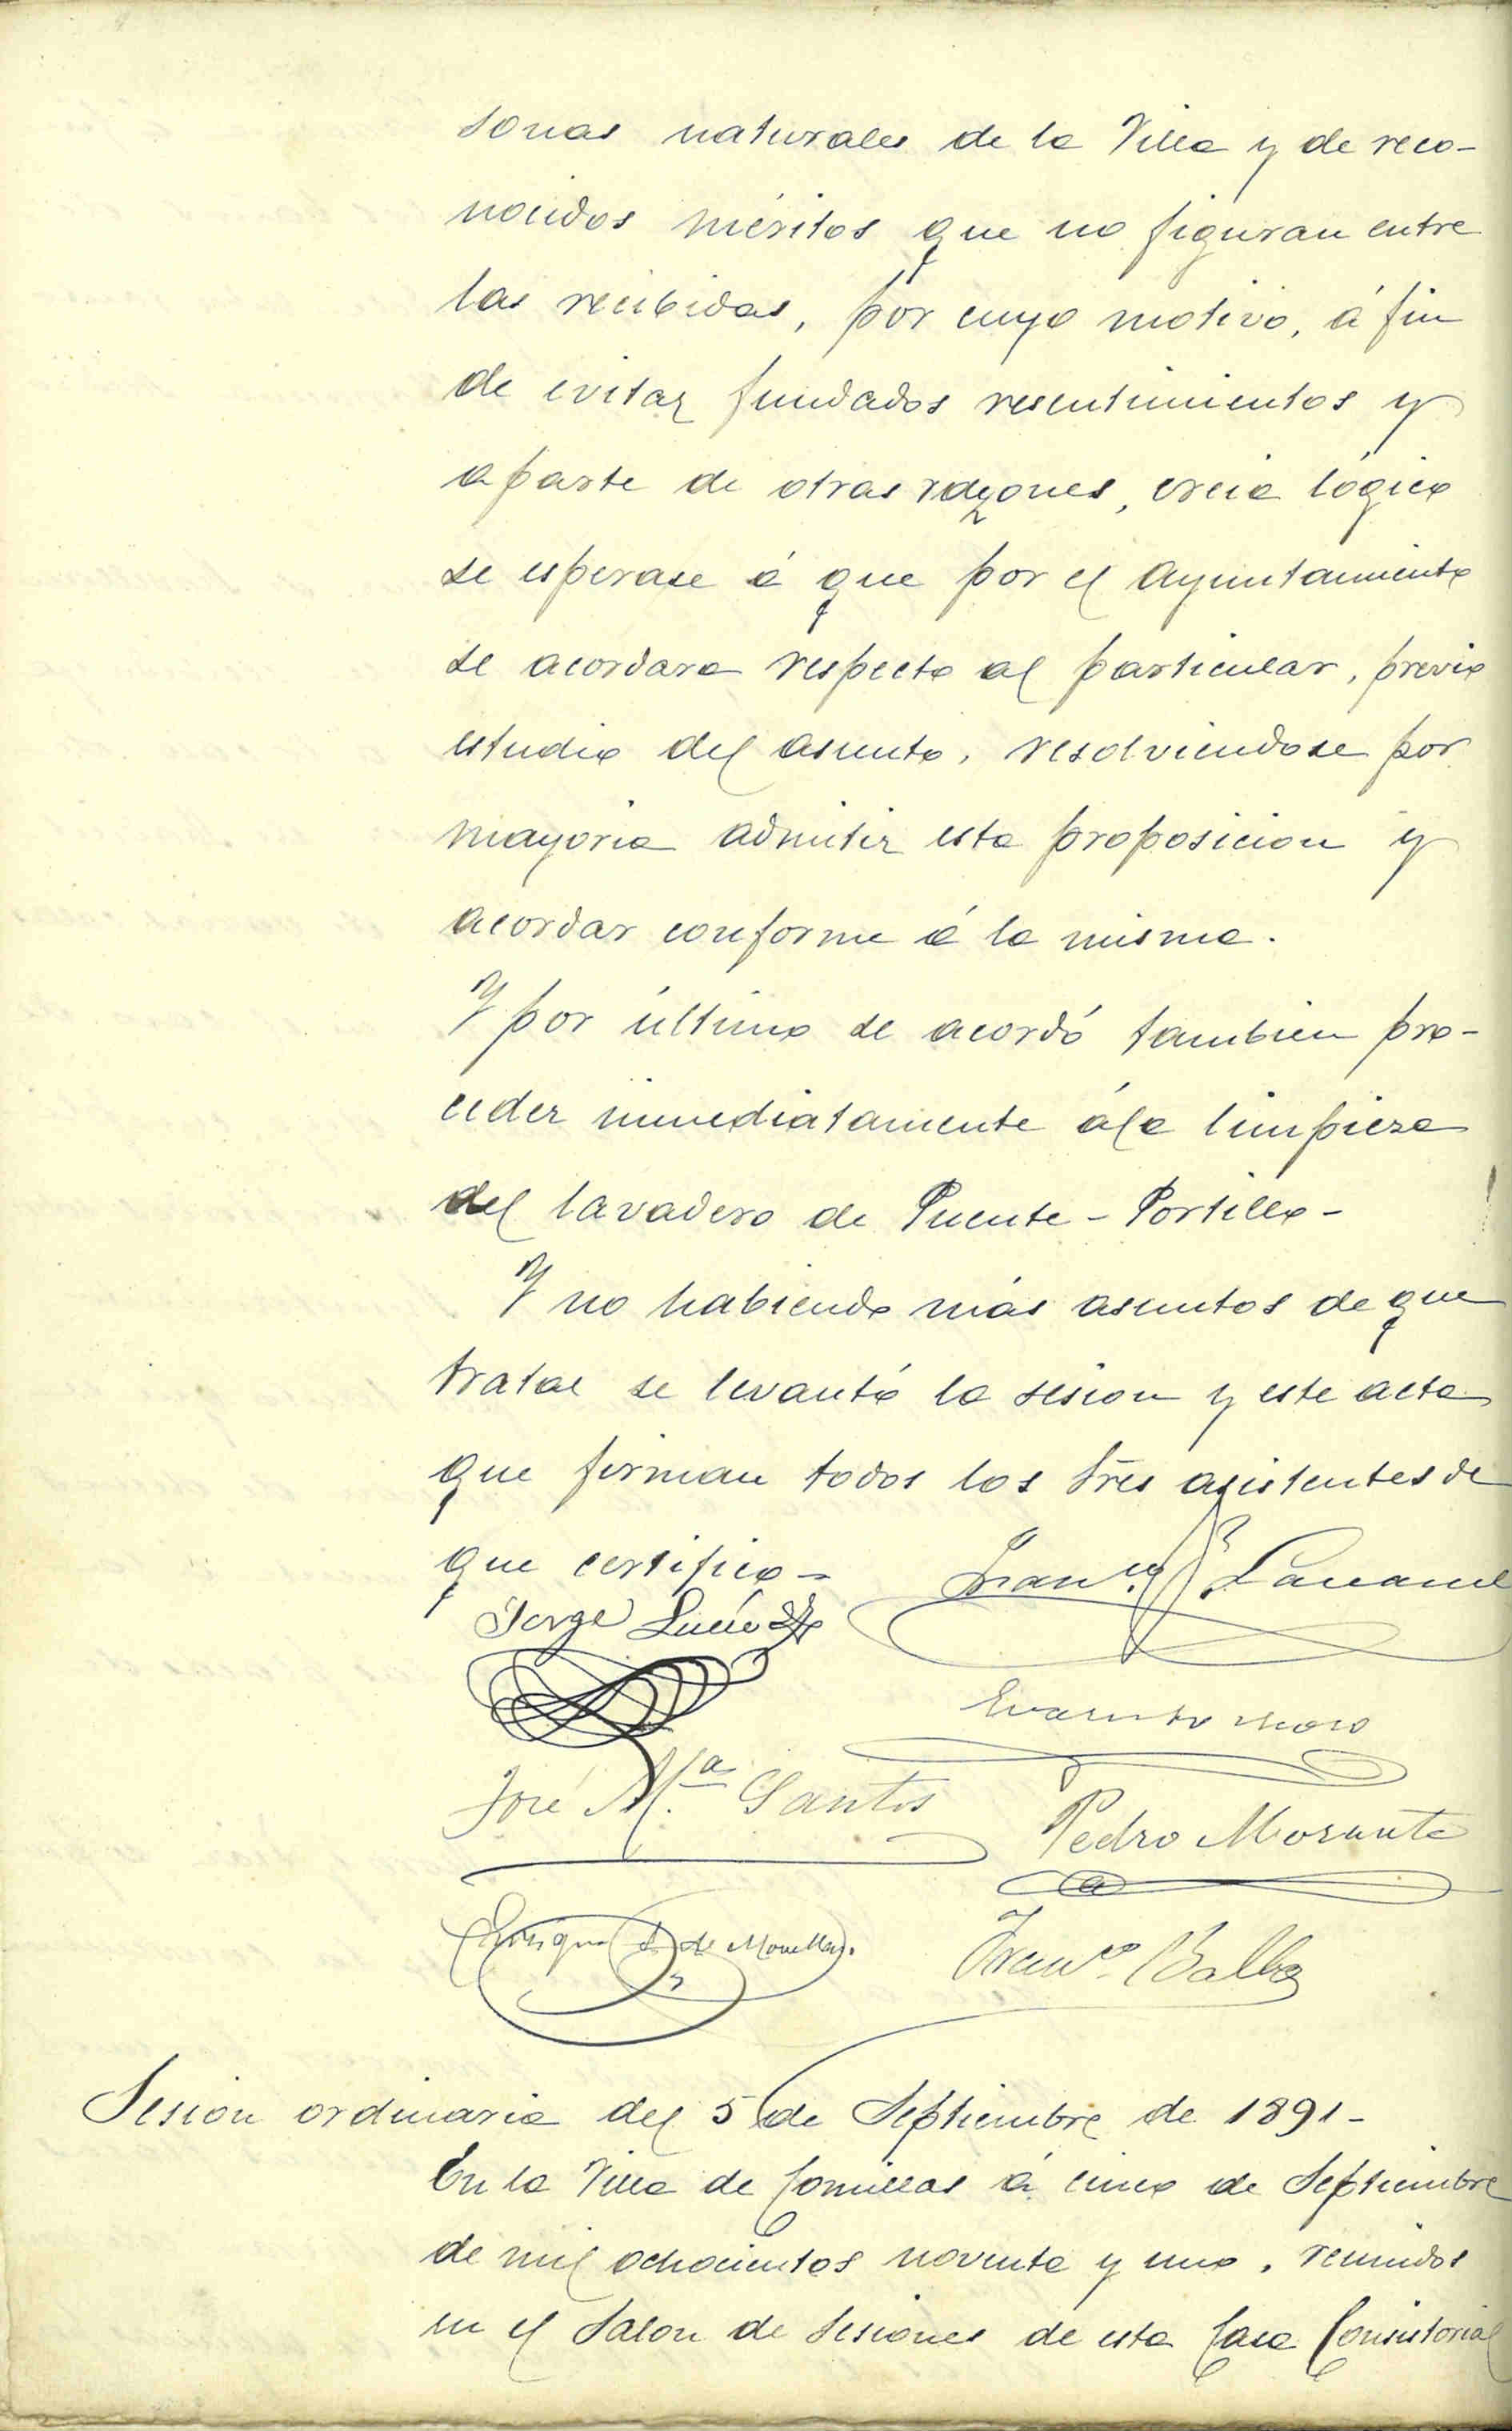 sonas naturales de la Villa y de reco-
nocidos méritos que no figuran entre
las recibidas, por cuyo motivo, á fin
de evitar fundados resentimientos y
aparte de otras razones, creia lógico
se esperase á que por el Ayuntamiento
se acordara respecto al particular, previo
estudio del asunto, resolviendose por
mayoria admitir esta proposicion y
acordar conforme á la misma.
Y por último se acordó tambien pro-
ceder inmediatamente á la limpieza
del lavadero de Puente-Portillo-
Y no habiendo más asuntos de que
tratar se levantó la sesion y este acta
que firman todos los Sres asistentes de
que certifico-
Jorge Lucio
Evaristo Moro
José M.ª Santos
Pedro Morante
Enrique de
Franco. Balbo
Sesion ordinaria del 5 de Septiembre de 1891-
En la Villa de Comillas á cinco de Septiembre
de mil ochocientos noventa y uno, reunidos
en el Salon de Sesiones de esta Casa Consistorial